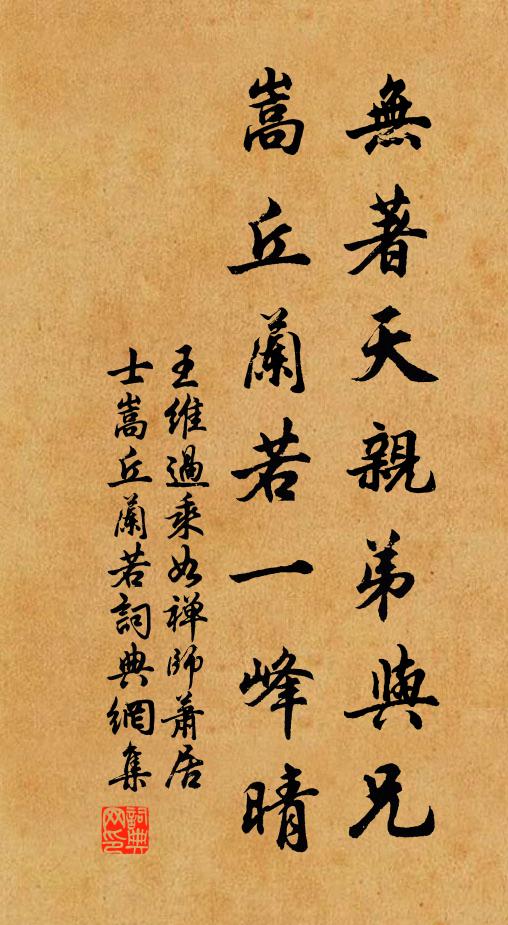 無著天親弟與兄
嵩丘蘭若一峰晴
王維過乘如禅師蕭居
士嵩丘蘭若詞典網集
詞典
网印